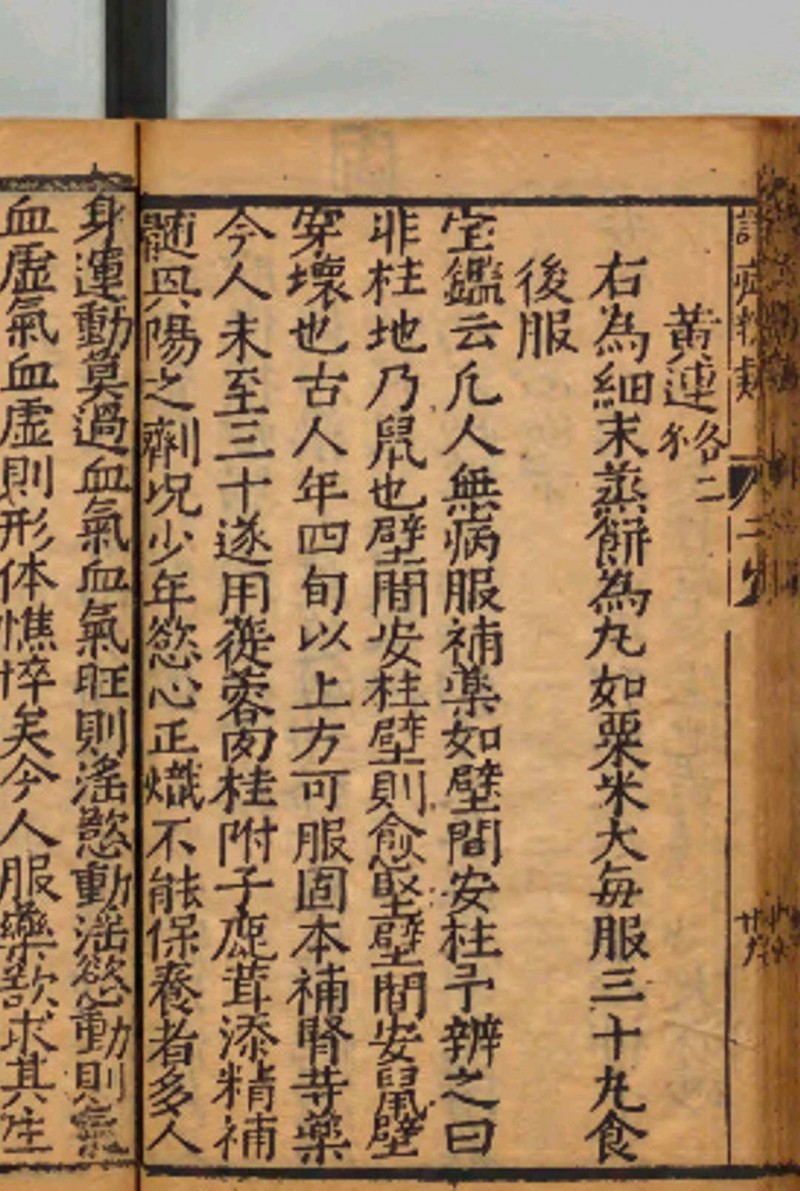 黃連各二
右為細末蒸餅為丸如粟米大每服三十丸食
後服
宝鑑云凢人無病服補藥如壁間安柱予辨之曰
非柱地乃鼠也壁間安柱壁則愈堅壁間安鼠壁
穿壞也古人年四旬以上方可服固本補腎等藥
今人未至三十遂用蓯蓉肉桂附子鹿茸添精補
髓兴陽之劑况少年慾心正熾不能保養者多人
身運動莫過血氣血氣旺則滛慾動滛慾動則氣
血虛氣血虛則形体憔悴矣今人服藥欲求其生